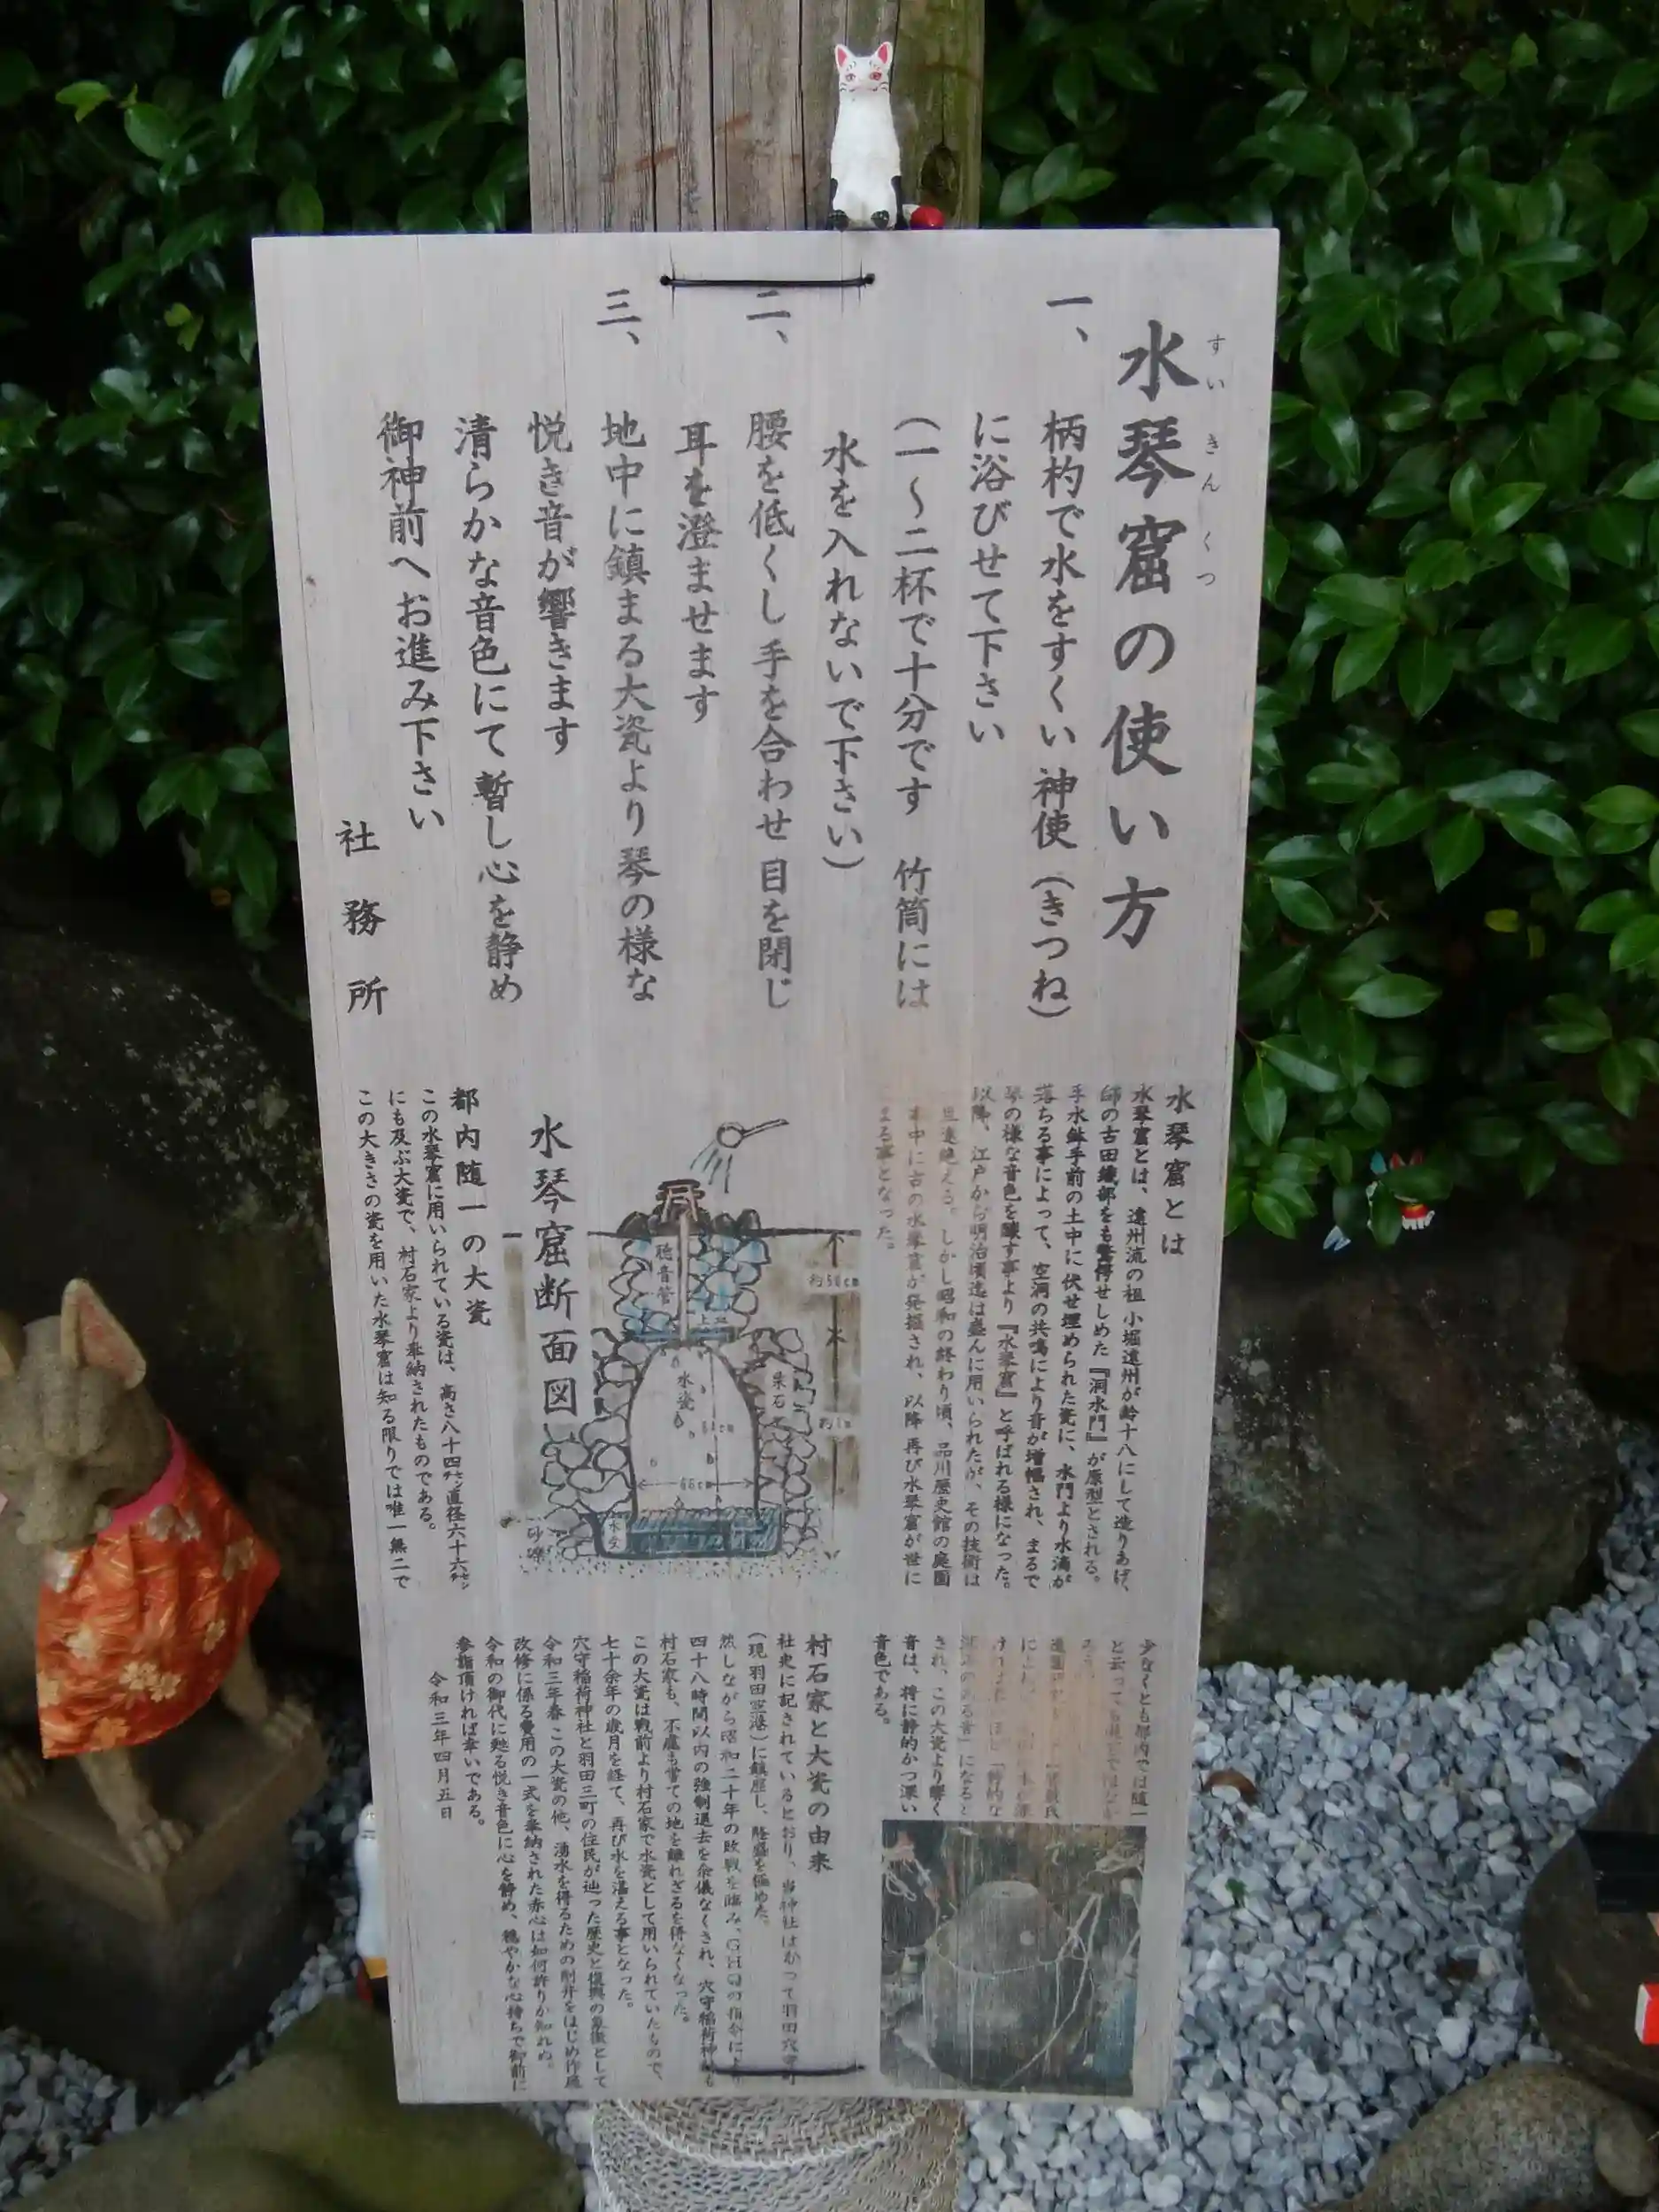 水琴窟の使い方
すいきんくつ
一、柄杓で水をすくい 神使(きつね)
に浴びせて下さい
(一〜二杯で十分です 竹筒には
水を入れないで下さい)
二、腰を低くし 手を合わせ 目を閉じ
耳を澄ませます
三、地中に鎮まる大瓷より 琴の様な
悦き音が響きます
清らかな音色にて 暫し心を静め
御神前へお進み下さい
社務所
水琴窟とは
水琴窟とは、遠州流の祖 小堀遠州が齢十八にして造りあげ、
師の古田織部をも驚愕せしめた『洞水門』が原型とされる。
手水鉢手前の土中に伏せ埋められた瓷に、水門より水滴が
落ちる事によって、空洞の共鳴により音が増幅され、まるで
琴の様な音色を醸す事より『水琴窟』と呼ばれる様になった。
以降、江戸から明治頃迄は盛んに用いられたが、その技術は
途絶える。しかし昭和の終わり頃、品川歴史館の庭園
中に古の水琴窟が発掘され、以降 再び水琴窟が世に
まる事となった。
水琴窟断面図
約50cm
聴音管
水瓷
栗石
約1m
84cm
66cm
砂礫
都内随一の大瓷
この水琴窟に用いられている瓷は、高さ八十四㌢直径六十六㌢
にも及ぶ大瓷で、村石家より奉納されたものである。
この大きさの瓷を用いた水琴窟は知る限りでは唯一無二で
少なくとも都内では随一
と云っても
され、この大瓷より響く
音は、将に静的かつ深い
音色である。
村石家と大瓷の由来
社史に記されているとおり、当神社はかつて羽田穴守町
(現羽田空港)に鎮座し、隆盛を極めた。
然しながら昭和二十年の敗戦を臨み、GHQの指令により
四十八時間以内の強制退去を余儀なくされ、穴守稲荷神社も
村石家も、不慮も嘗ての地を離れざるを得なくなった。
この大瓷は戦前より村石家で水瓷として用いられていたもので、
七十余年の歳月を経て、再び水を湛える事となった。
穴守稲荷神社と羽田三町の住民が辿った歴史と復興の象徴として
令和三年春 この大瓷の他、湧水を得るための削井をはじめ作庭
改修に係る費用の一式を奉納された赤心は如何許りか知れぬ。
令和の御代に甦る悦き音色に心を静め、穏やかな心持ちで御前に
参詣頂ければ幸いである。
令和三年四月五日